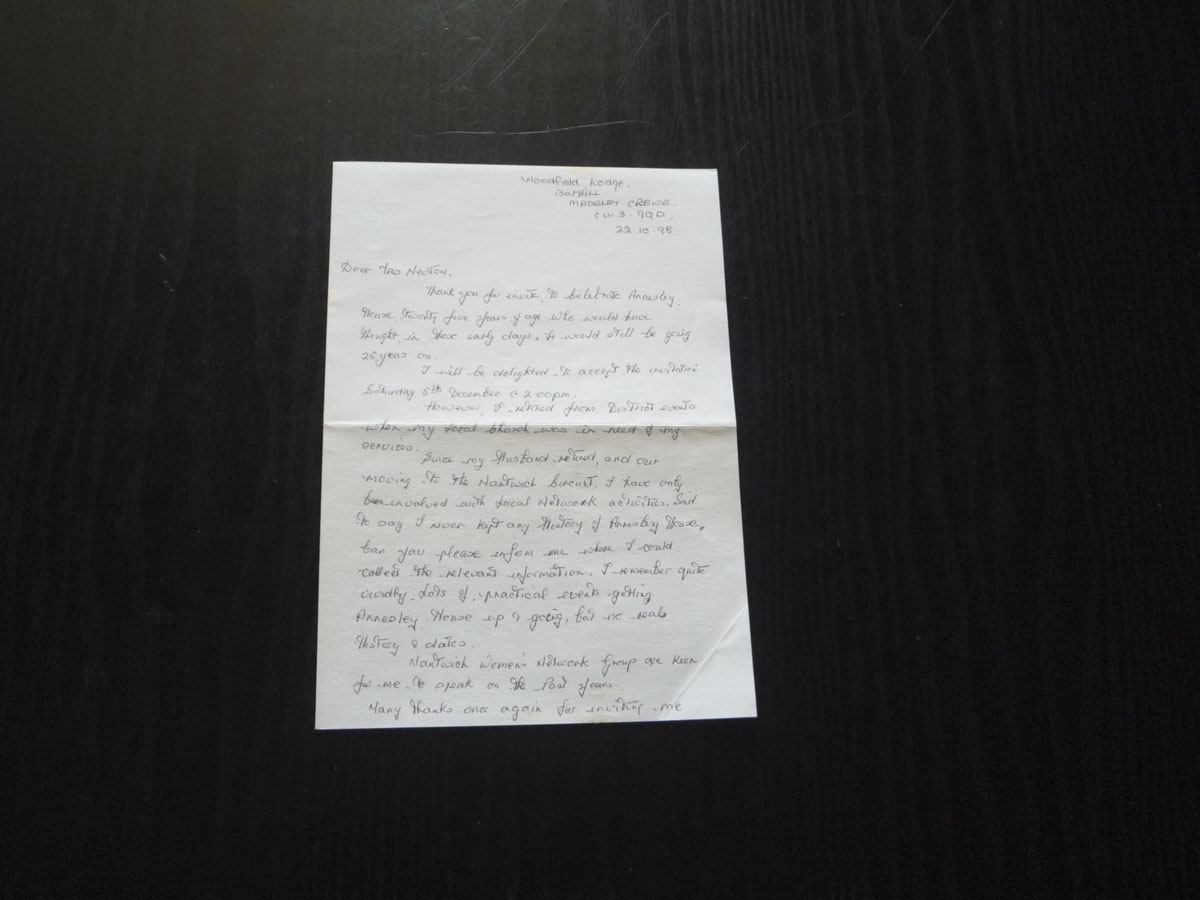 Woodfield Lodge.
BAR HILL
MADELEY CREWE.
CW3. 9QD.
22.10.98
Dear Mrs Newton,
Thank you for invite, to Celebrate Annesley
House, twenty five years of age who would have
thought in those early days, it would still be going
25 years on.
I will be delighted to accept the invitation
Saturday 5th December @ 2.00pm.
However, I retired from District events
when my Local Church was in need of my
services.
Since my Husband retired, and our
moving to the Nantwich Circuit, I have only
been involved with Local Network activities. Sad
to say I never kept any History of Annesley House,
Can you please inform me where I could
collect the relevant information. I remember quite
vividly Lots of practical events getting
Annesley House up & going, but no real
History & dates.
Nantwich Women's Network Group are Keen
for me to speak on the Past years.
Many thanks once again for inviting me